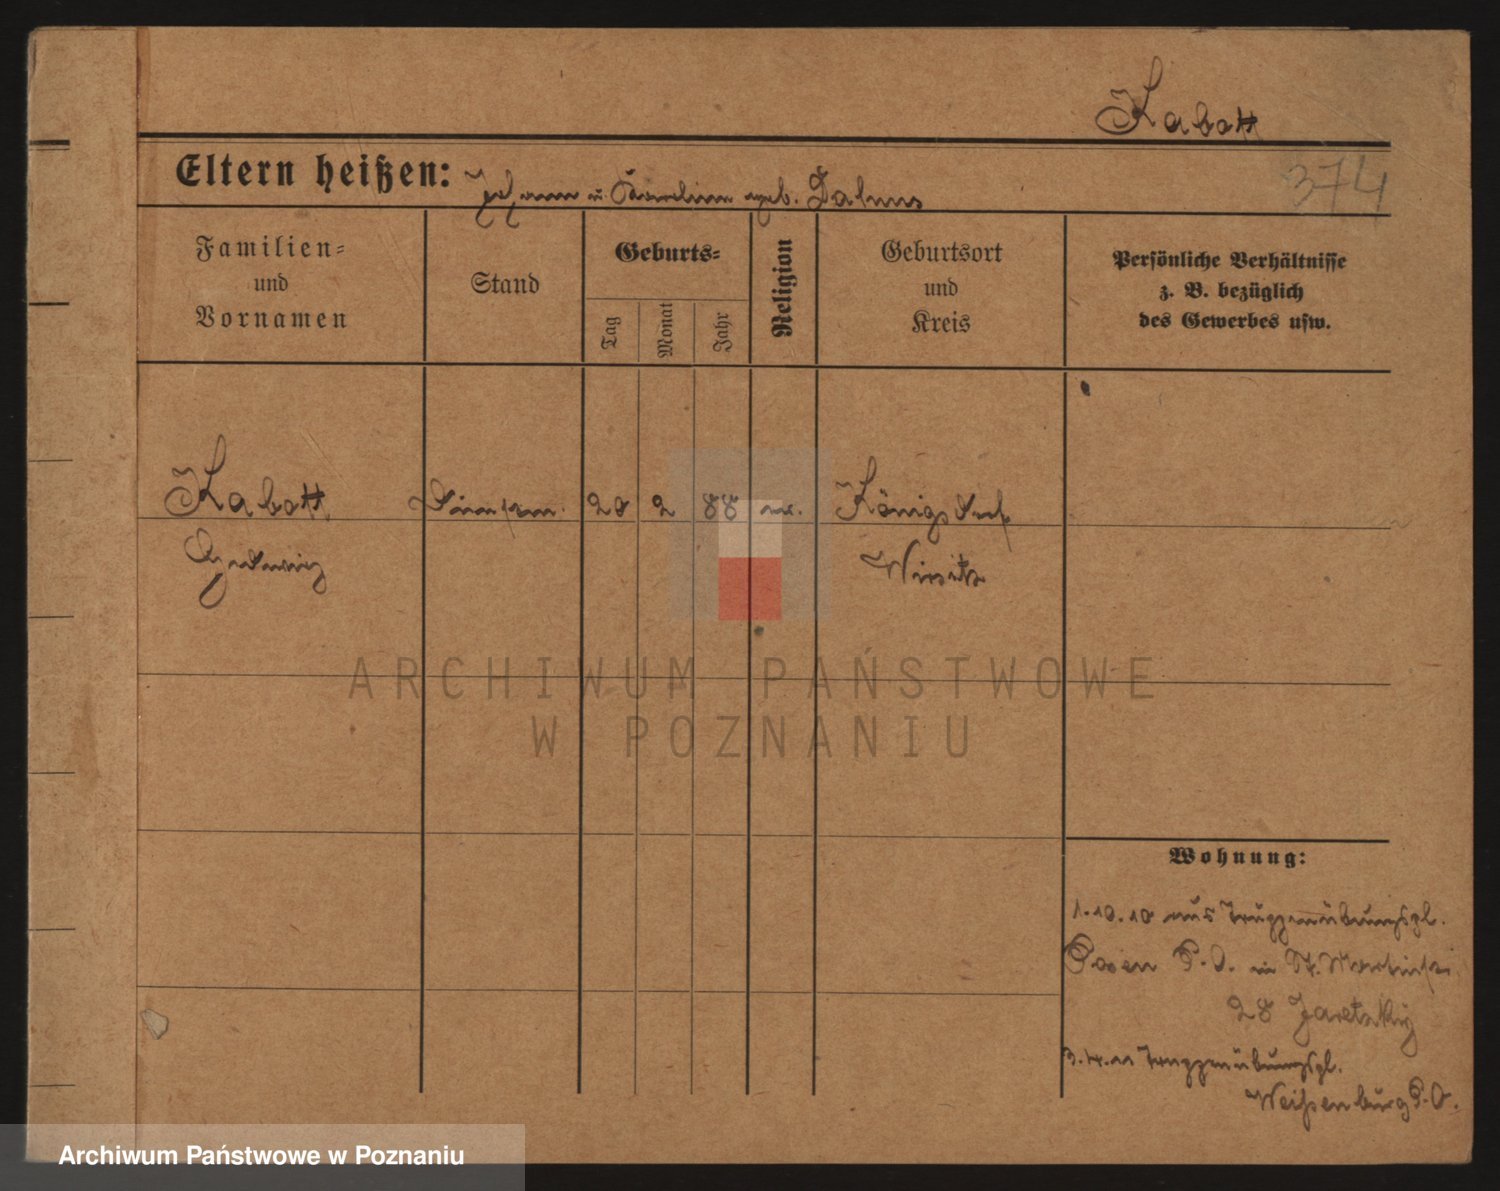 Kabott
374
Eltern heißen: Johann u. Karoline geb. Dalmus
Familien=
und
Vornamen
Stand
Geburts=
Tag
Monat
Jahr
Religion
Geburtsort
und
Kreis
Persönliche Verhältnisse
z. B. bezüglich
des Gewerbes usw.
Kabott
Hedwig
Dienstm.
28
2
88
ev.
Königsdorf
Wirsitz
ARCHIWUM PAŃSTWOWE
W POZNANIU
Wohnung:
1.10.10 aus Truppenübungspl.
Posen P.O. in St. Martinstr.
28
3.4.11 Truppenübungspl.
Weißenburg P.O.
Archiwum Państwowe w Poznaniu